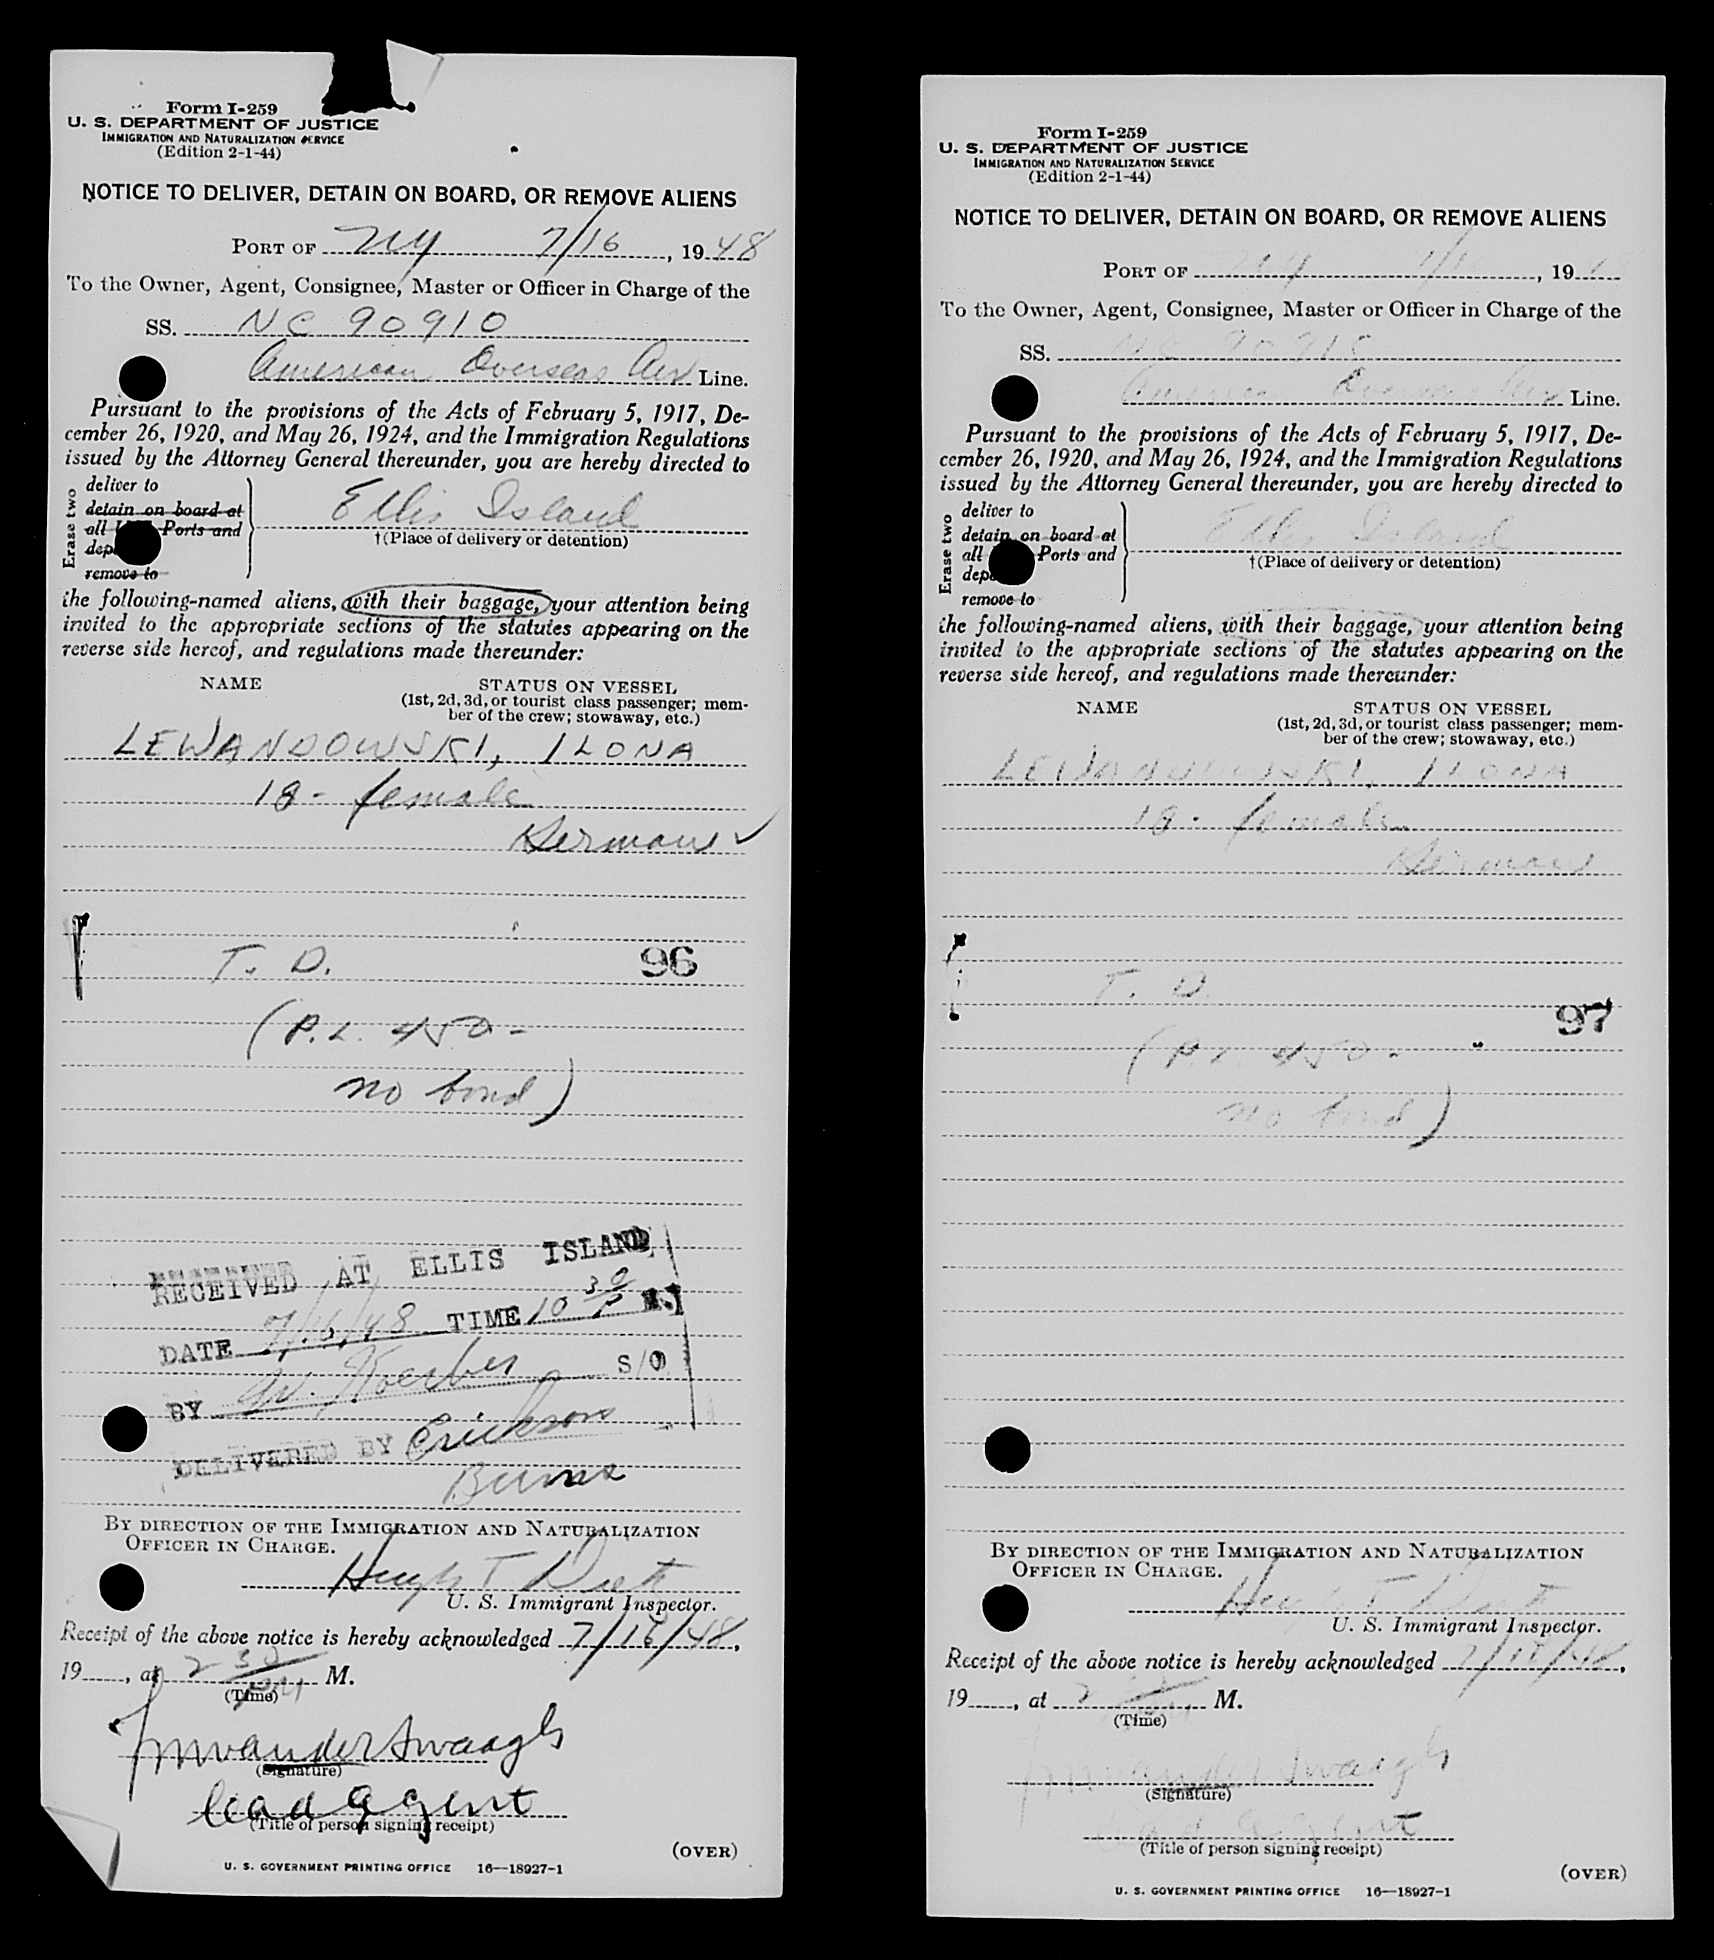 Form I-259
U. S. DEPARTMENT OF JUSTICE
IMMIGRATION AND NATURALIZATION SERVICE
(Edition 2-1-44)
NOTICE TO DELIVER, DETAIN ON BOARD, OR REMOVE ALIENS
PORT OF NY 7/16, 1948
To the Owner, Agent, Consignee, Master or Officer in Charge of the
SS. NC 90910
American Overseas Air Line.
Pursuant to the provisions of the Acts of February 5, 1917, De-
cember 26, 1920, and May 26, 1924, and the Immigration Regulations
issued by the Attorney General thereunder, you are hereby directed to
Erase two
deliver to
detain on board at
all Ports and
remove to
Ellis Island
†(Place of delivery or detention)
the following-named aliens, with their baggage, your attention being
invited to the appropriate sections of the statutes appearing on the
reverse side hereof, and regulations made thereunder:
NAME STATUS ON VESSEL
(1st, 2d, 3d, or tourist class passenger; mem-
ber of the crew; stowaway, etc.)
LEWANDOWSKI, ILONA
18 - female
German ✓
T. D. 96
(P.L. 450 -
no bond)
RECEIVED AT ELLIS ISLAND
DATE 7/16/48 TIME 10 30 P M.
BY W. Koerber S/O
DELIVERED BY Erickson
Burns
BY DIRECTION OF THE IMMIGRATION AND NATURALIZATION
OFFICER IN CHARGE.
Hugh T
U. S. Immigrant Inspector.
Receipt of the above notice is hereby acknowledged 7/16/48,
19, at 2 30 PM M.
(Time)
(Signature)
lead agent
(Title of person signing receipt)
(OVER)
U. S. GOVERNMENT PRINTING OFFICE 16—18927-1
Form I-259
U. S. DEPARTMENT OF JUSTICE
IMMIGRATION AND NATURALIZATION SERVICE
(Edition 2-1-44)
NOTICE TO DELIVER, DETAIN ON BOARD, OR REMOVE ALIENS
PORT OF NY 7/16, 1948
To the Owner, Agent, Consignee, Master or Officer in Charge of the
SS. NC 90910
American Overseas Air Line.
Pursuant to the provisions of the Acts of February 5, 1917, De-
cember 26, 1920, and May 26, 1924, and the Immigration Regulations
issued by the Attorney General thereunder, you are hereby directed to
Erase two
deliver to
detain on board at
all Ports and
remove to
Ellis Island
†(Place of delivery or detention)
the following-named aliens, with their baggage, your attention being
invited to the appropriate sections of the statutes appearing on the
reverse side hereof, and regulations made thereunder:
NAME STATUS ON VESSEL
(1st, 2d, 3d, or tourist class passenger; mem-
ber of the crew; stowaway, etc.)
LEWANDOWSKI, ILONA
18 - female
German
T. D.
97
(P.L. 450 -
no bond)
BY DIRECTION OF THE IMMIGRATION AND NATURALIZATION
OFFICER IN CHARGE.
Hugh T
U. S. Immigrant Inspector.
Receipt of the above notice is hereby acknowledged 7/16/48,
19, at 2 M.
(Time)
(Signature)
lead agent
(Title of person signing receipt)
(OVER)
U. S. GOVERNMENT PRINTING OFFICE 16—18927-1